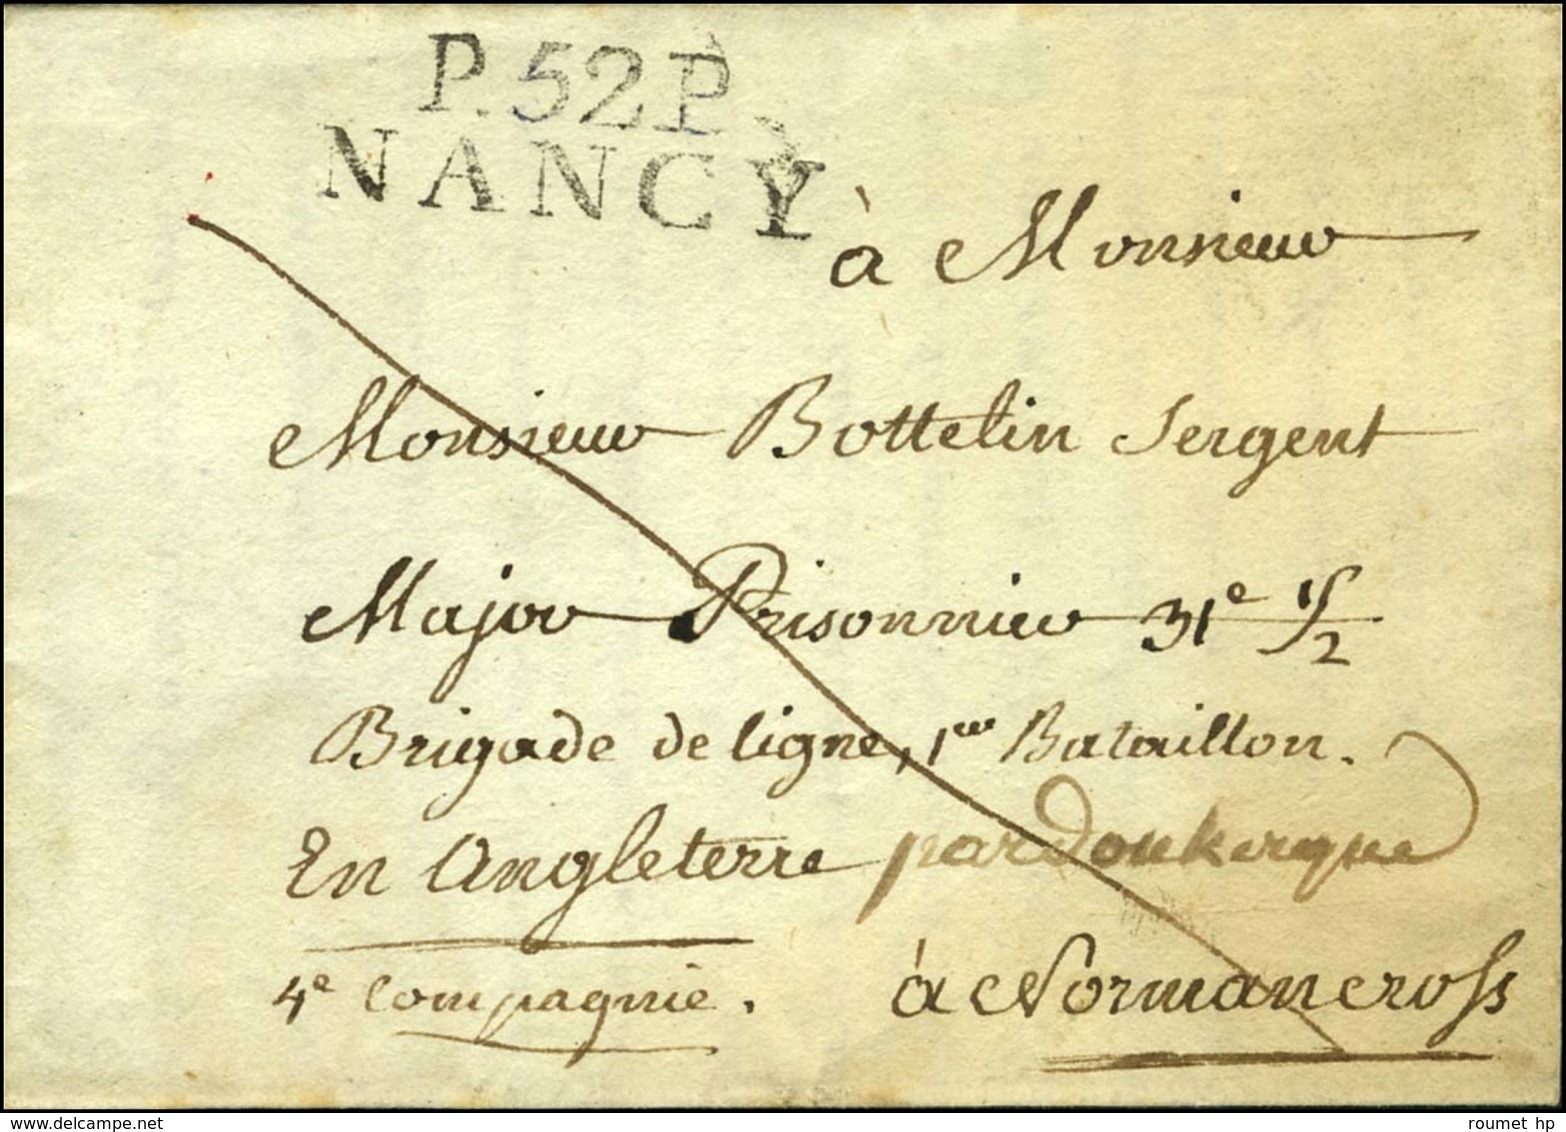 P.52P.
NANCY
à Monsieur
Monsieur Bottelin Sergent
Major Prisonnier 31e 1/2
Brigade de ligne, 1er Bataillon.
En Angleterre par donkerque
4e Compagnie. à Normancross
roumet hp